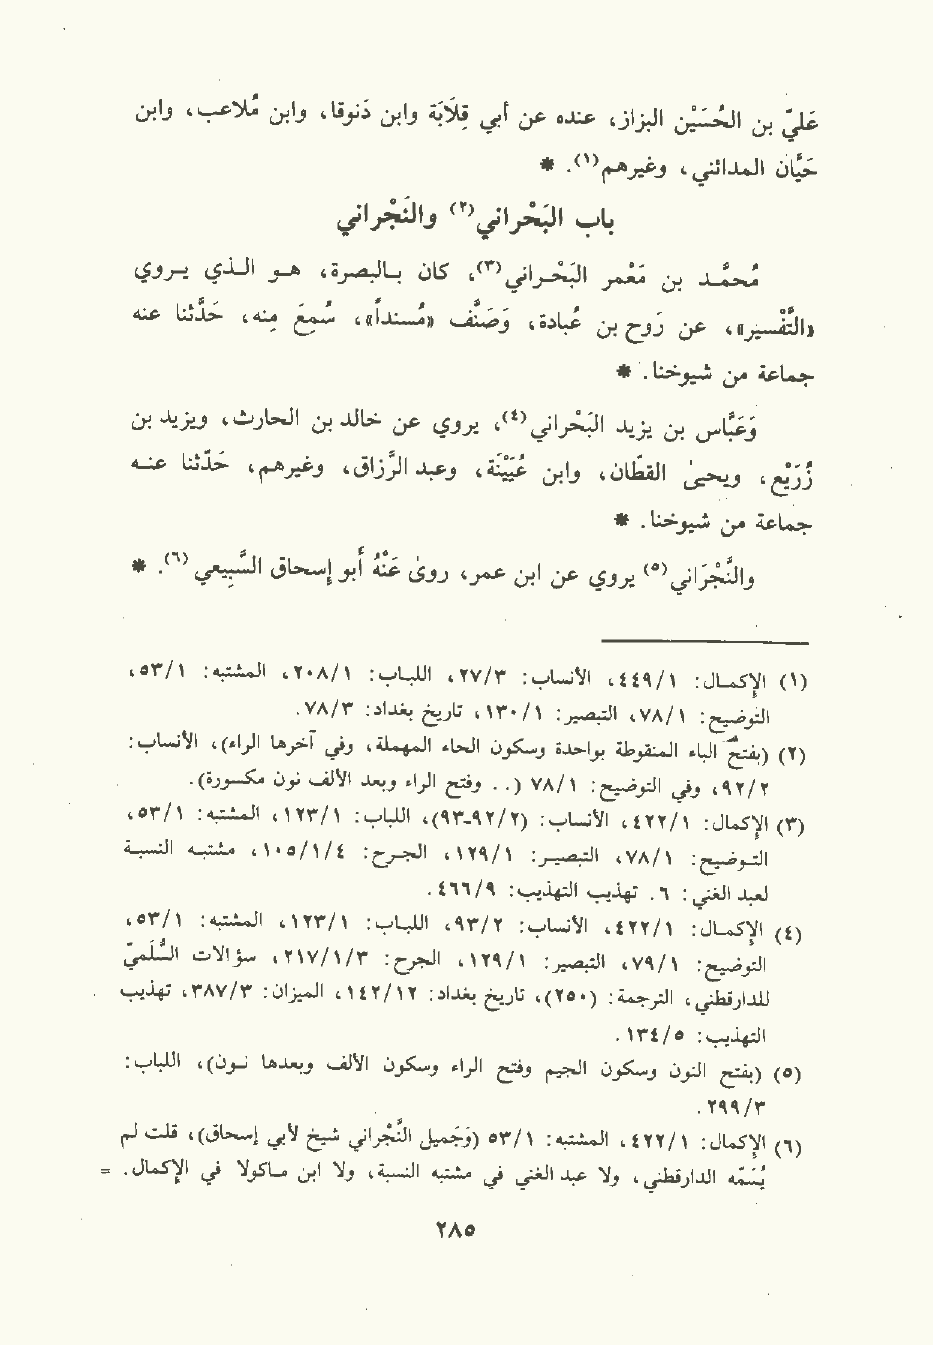 عَليّ بن الحُسَيْن البزاز، عنده عن أبي قِلَابَة وابن دَنوقا، وابن مُلاعب، وابن
حَيَّان المدائني، وغيرهم(١). *
باب البَحْراني(٢) والنَجْراني
مُحمَّـد بن مَعْمر البَحْـراني(٣)، كان بـالبصرة، هـو الـذي يـروي
«التَّفْسير»، عن رَوح بن عُبادة، وَصَنَّف «مُسنداً»، سُمِعَ مِنه، حَدَّثنا عنه
جماعة من شيوخنا. *
وَعَبَّاس بن يزيد البَحْراني(٤)، يروي عن خالد بن الحارث، ويزيد بن
زُرَيْع، ويحيىٰ القطّان، وابن عُيَيْنَة، وعبد الرزاق، وغيرهم، حَدّثنا عنـه
جماعة من شيوخنا. *
والنَّجْرَاني(٥) يروي عن ابن عمر، روىٰ عَنْهُ أَبو إسحاق السَّبِيعي(٦). *
(١) الإكمـال: ٤٤٩/١، الأنساب: ٢٧/٣، اللبـاب: ٢٠٨/١، المشتبه: ٥٣/١،
التوضيح: ٧٨/١، التبصير: ١٣٠/١، تاريخ بغداد: ٧٨/٣.
(٢) (بفتح الباء المنقوطة بواحدة وسكون الحاء المهملة، وفي آخرها الراء)، الأنساب:
٩٢/٢، وفي التوضيح: ٧٨/١ (.. وفتح الراء وبعد الألف نون مكسورة).
(٣) الإكمال: ٤٢٢/١، الأنساب: (٩٢/٢-٩٣)، اللباب: ١٢٣/١، المشتبه: ٥٣/١،
التـوضيح: ٧٨/١، التبصيـر: ١٢٩/١، الجـرح: ١٠٥/١/٤، مشتبـه النسبـة
لعبد الغني: ٦. تهذيب التهذيب: ٤٦٦/٩.
(٤) الإكمـال: ٤٢٢/١، الأنساب: ٩٣/٢، اللبـاب: ١٢٣/١، المشتبه: ٥٣/١،
التوضيح: ٧٩/١، التبصير: ١٢٩/١، الجرح: ٢١٧/١/٣، سؤالات السُّلَميّ
للدارقطني، الترجمة: (٢٥٠)، تاريخ بغداد: ١٤٢/١٢، الميزان: ٣٨٧/٢، تهذيب
التهذيب: ١٣٤/٥.
(٥) (بفتح النون وسكون الجيم وفتح الراء وسكون الألف وبعدها نـون)، اللباب:
٢٩٩/٣.
(٦) الإكمال: ٤٢٢/١، المشتبه: ٥٣/١ (وَجَميل النَّجْراني شيخ لأبي إسحاق)، قلت لم
يُسَمّه الدارقطني، ولا عبد الغني في مشتبه النسبة، ولا ابن مـاكولا في الإكمال. =
٢٨٥